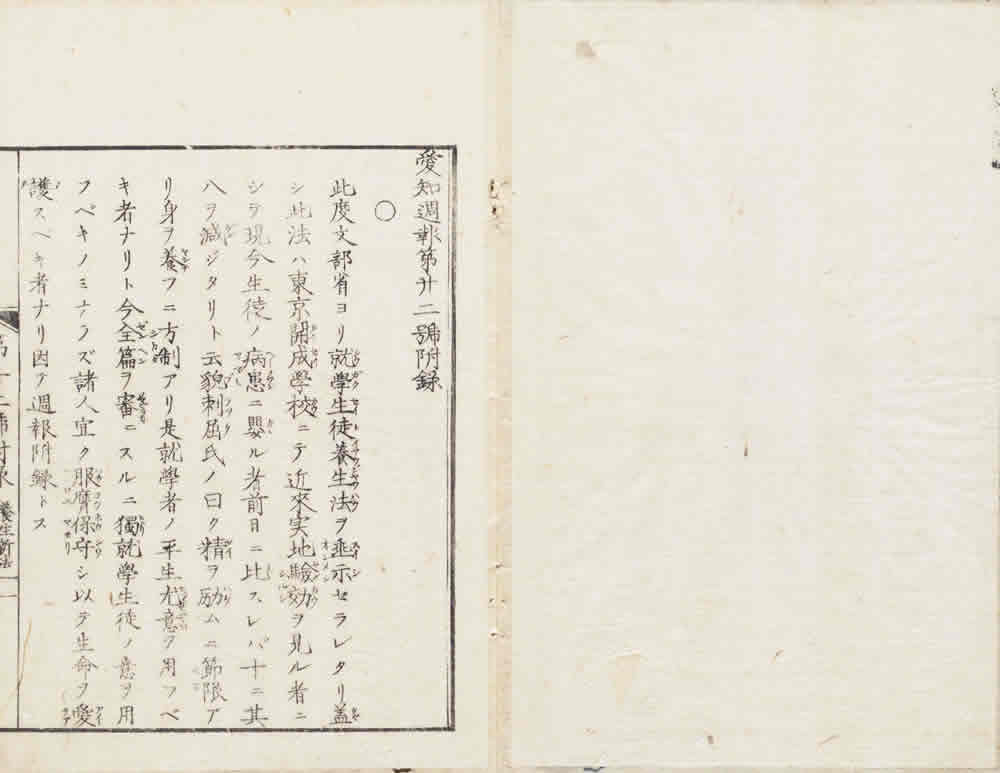 愛知週報第廿二號附録
○
此度文部省ヨリ就學生徒養生法ヲ垂示セラレタリ蓋
シ此法ハ東京開成學校ニテ近來実地驗効ヲ見ル者ニ
シテ現今生徒ノ病患ニ嬰ル者前日ニ比スレバ十ニ其
八ヲ減ジタリト云貌刺屈氏ノ曰ク精ヲ励ムニ節限ア
リ身ヲ養フニ方制アリ是就學者ノ平生尤意ヲ用フベ
キ者ナリト今全篇ヲ審ニスルニ獨就學生徒ノ意ヲ用
フベキノミナラズ諸人宜ク服膺保守シ以テ生命ヲ愛
護スベキ者ナリ因テ週報附録トス